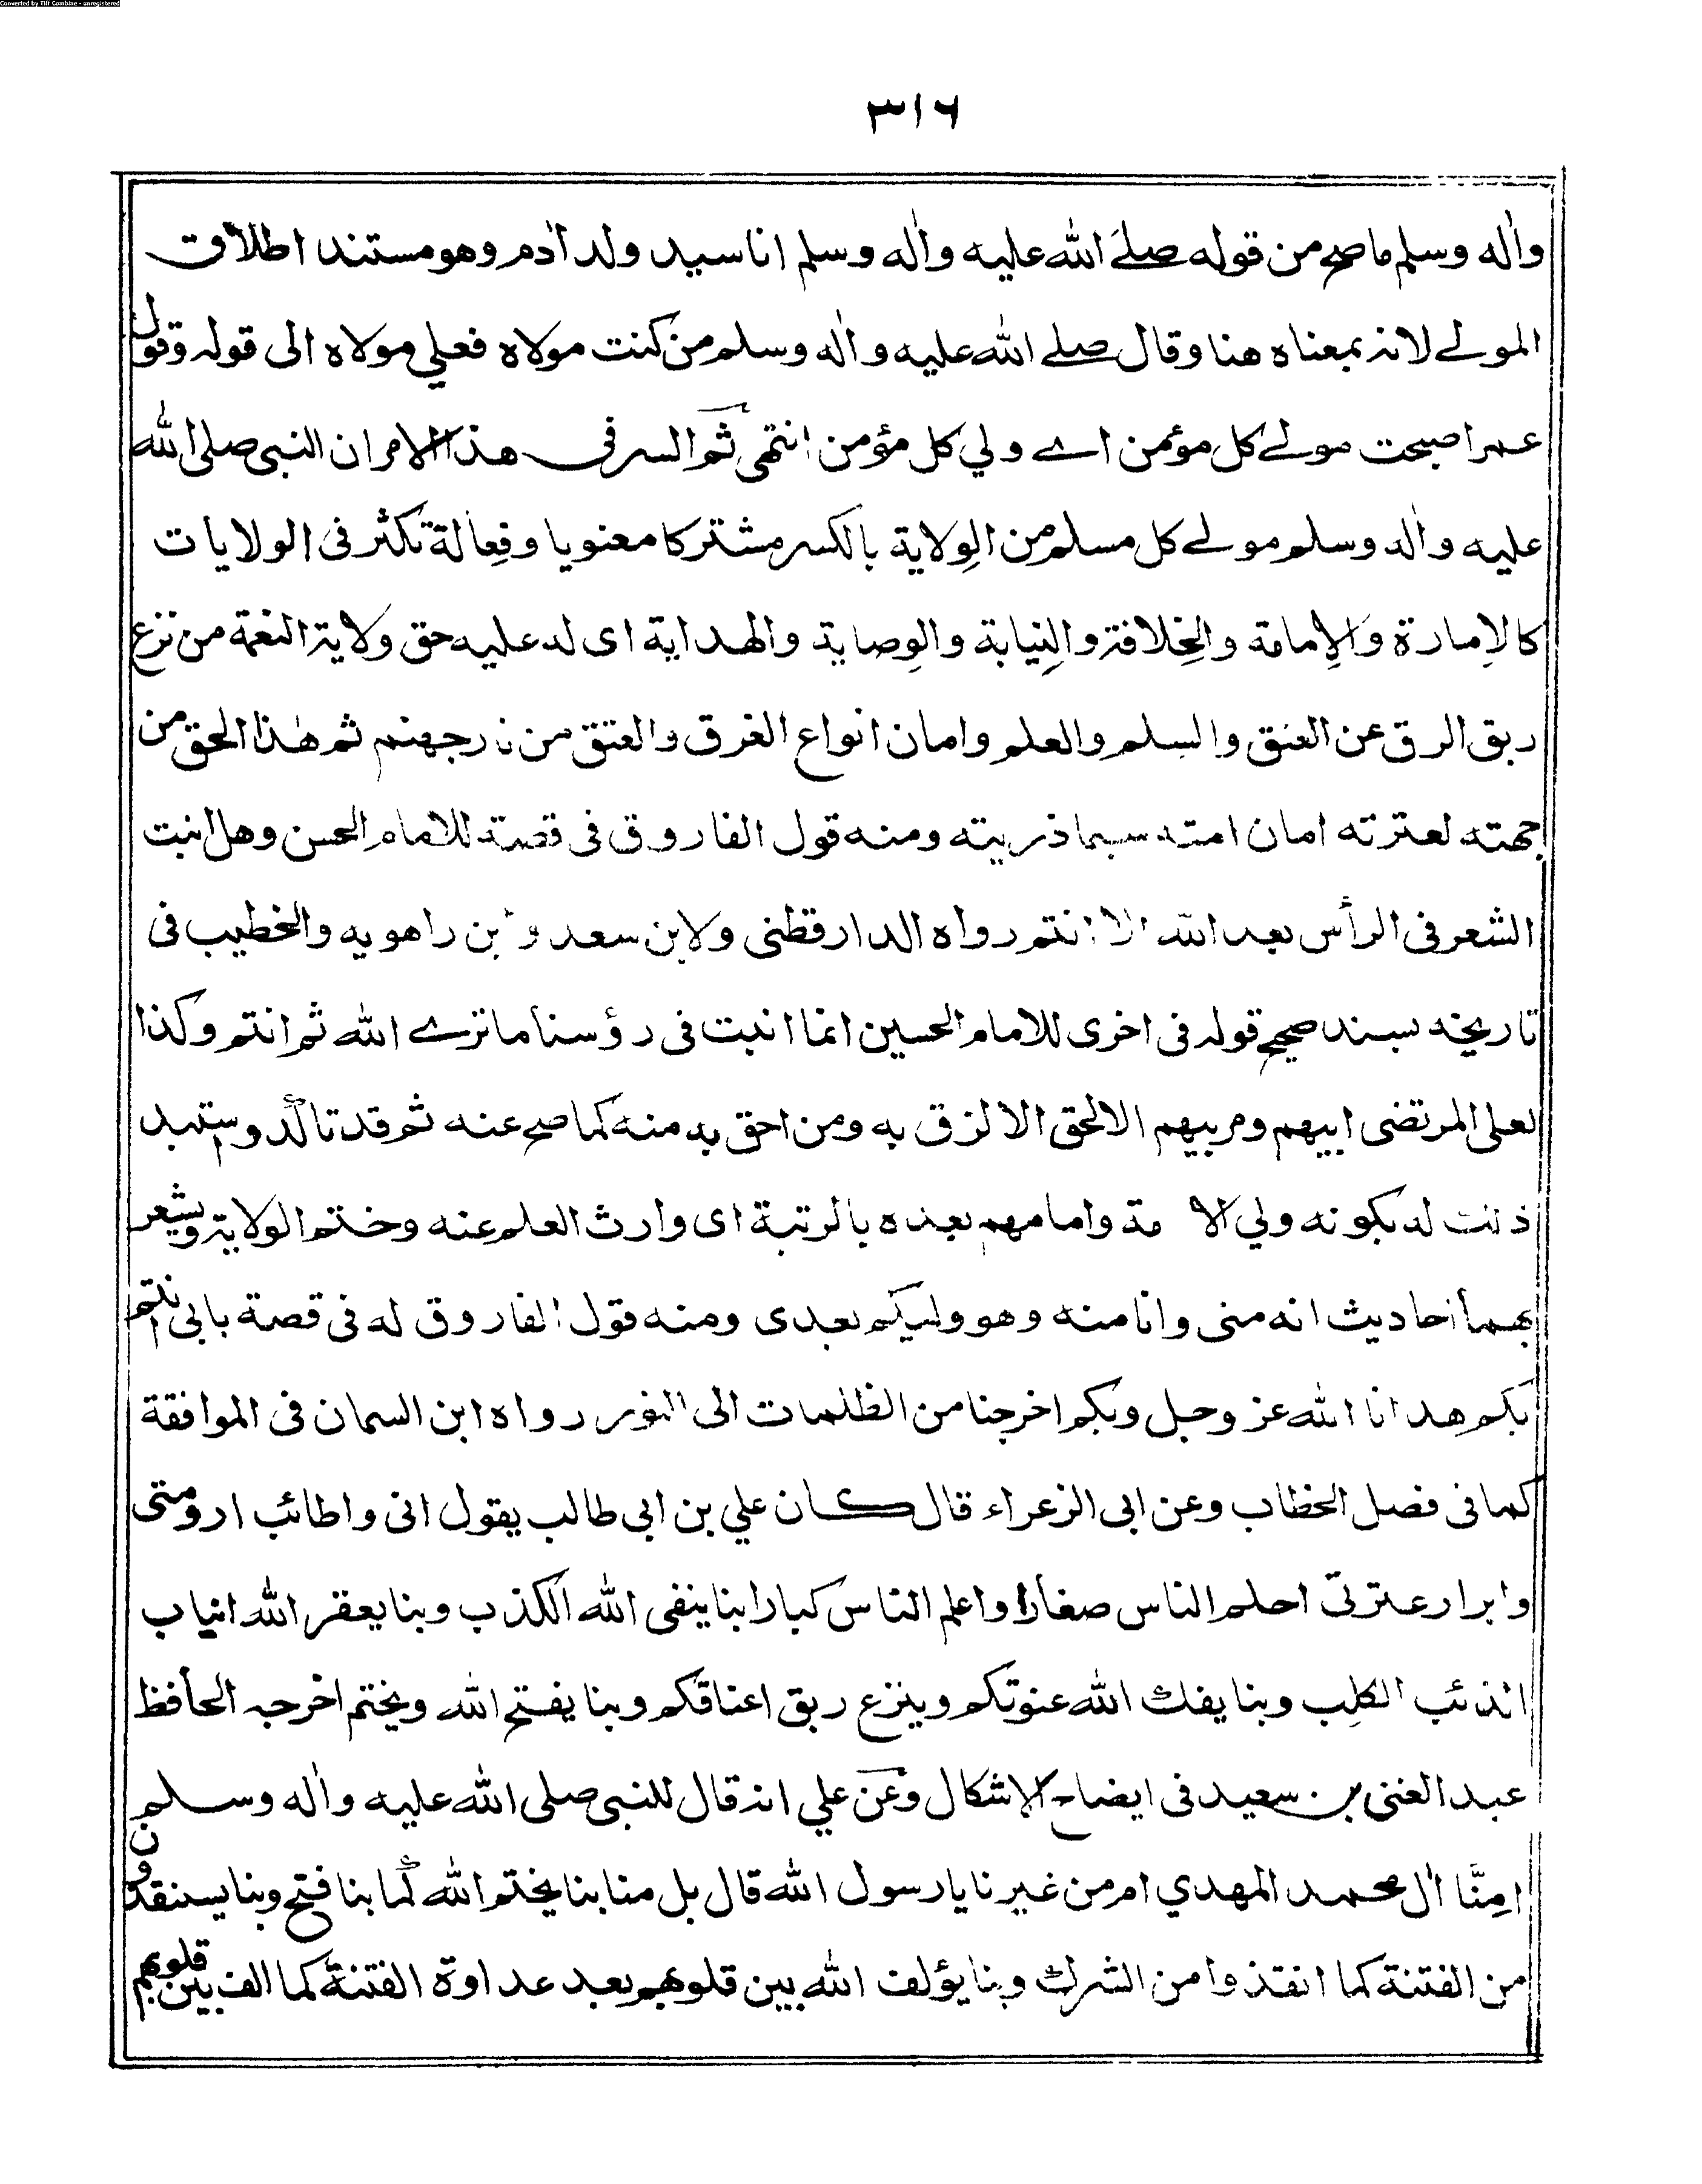 Converted by Tiff Combine - unregistered
٣١٦
واٰله وسلم ماصح من قوله صلے الله عليه واٰله وسلم انا سيد ولد اٰدم وهو مستند اطلاق
المولے لانه بمعناه هنا وقال صلے الله عليه واٰله وسلم من كنت مولاه فعلي مولاه الى قوله وقول
عمر اصبحت مولے كل مؤمن اے ولي كل مؤمن انتهى ثم السر فى هذا الامر ان النبى صلى الله
عليه واٰله وسلم مولے كل مسلم من الوِلاية بالكسر مشتركا معنويا وفِعالة تكثر فى الولايات
كالاِمارة والاِمامة والخِلافة والنِيابة والوِصاية والهداية اى له عليه حق ولاية النعمة من نزع
ربق الرق عن العنق والسلم والعلم وامان انواع الغرق والعتق من نار جهنم ثم هٰذا الحق من
جهته لعترته امان امته سيما ذريته ومنه قول الفاروق فى قصة للامام الحسن وهل انبت
الشعر فى الرأس بعد الله الا انتم رواه الدارقطنى ولابن سعد وابن راهويه والخطيب فى
تاريخه بسند صحيح قوله فى اخرى للامام الحسين انما انبت فى رؤسنا ماترے الله ثم انتم وكذا
لعلى المرتضى ابيهم ومربيهم الالحق الالزق به ومن احق به منه كما صح عنه ثم قد تأكد واستبد
ذلك له بكونه ولي الامة وامامهم بعده بالرتبة اى وارث العلم عنه وختم الولاية ويشعر
بهما احاديث انه منى وانا منه وهو وليكم بعدى ومنه قول الفاروق له فى قصة بابى انتم
بكم هدانا الله عز وجل وبكم اخرجنا من الظلمات الى النور رواه ابن السمان فى الموافقة
كما فى فصل الخطاب وعن ابى الزعراء قال كان علي بن ابي طالب يقول انى واطائب ارومتى
وابرار عترتى احلم الناس صغارا واعلم الناس كبارا بنا ينفى الله الكذب وبنا يعقر الله انياب
الذئب الكلِب وبنا يفك الله عنوتكم وينزع ربق اعناقكم وبنا يفتح الله ويختم اخرجه الحافظ
عبد الغنى بن سعيد فى ايضاح الاشكال وعن علي انه قال للنبى صلى الله عليه واٰله وسلم
امِنَّا اٰل محمد المهدي ام من غيرنا يا رسول الله قال بل منا بنا يختم الله كما بنا فتح وبنا يستنقذون
من الفتنة كما انقذوا من الشرك وبنا يؤلف الله بين قلوبهم بعد عداوة الفتنة كما الف بين قلوبهم